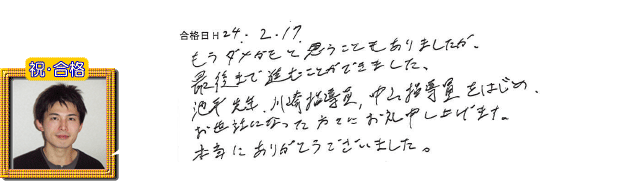 祝・合格
合格日 H 24. 2. 17
もうダメかもと思うこともありましたが、
最後まで進むことができました。
池平先生、川崎指導員、中山指導員をはじめ、
お世話になった方々にお礼申し上げます。
本当にありがとうございました。